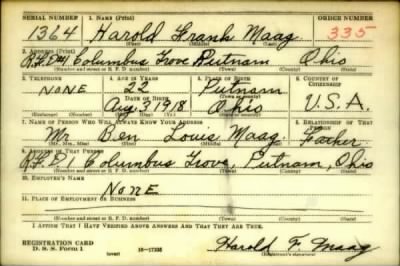 SERIAL NUMBER 1. NAME (Print) ORDER NUMBER
1364 Harold Frank Maag 335
(First) (Middle) (Last)
2. ADDRESS (Print)
R.F.D #1 Columbus Grove Putnam Ohio
(Number and street or R. F. D. number) (Town) (County) (State)
3. TELEPHONE 4. AGE IN YEARS 5. PLACE OF BIRTH 6. COUNTRY OF CITIZENSHIP
NONE 22 Putnam
DATE OF BIRTH
Aug. 3 1918 Ohio U.S.A.
7. NAME OF PERSON WHO WILL ALWAYS KNOW YOUR ADDRESS 8. RELATIONSHIP OF THAT PERSON
Mr. Ben Louis Maag. Father
(Mr., Mrs., Miss) (First) (Middle) (Last)
9. ADDRESS OF THAT PERSON
R.F.D1 Columbus Grove, Putnam, Ohio
(Number and street or R. F. D. number) (Town) (County) (State)
10. EMPLOYER'S NAME
NONE
11. PLACE OF EMPLOYMENT OR BUSINESS
(Number and street or R. F. D. number) (Town) (County) (State)
I AFFIRM THAT I HAVE VERIFIED ABOVE ANSWERS AND THAT THEY ARE TRUE.
REGISTRATION CARD
D. S. S. Form 1 (over) 16-17105 Harold F. Maag
(Registrant's signature)